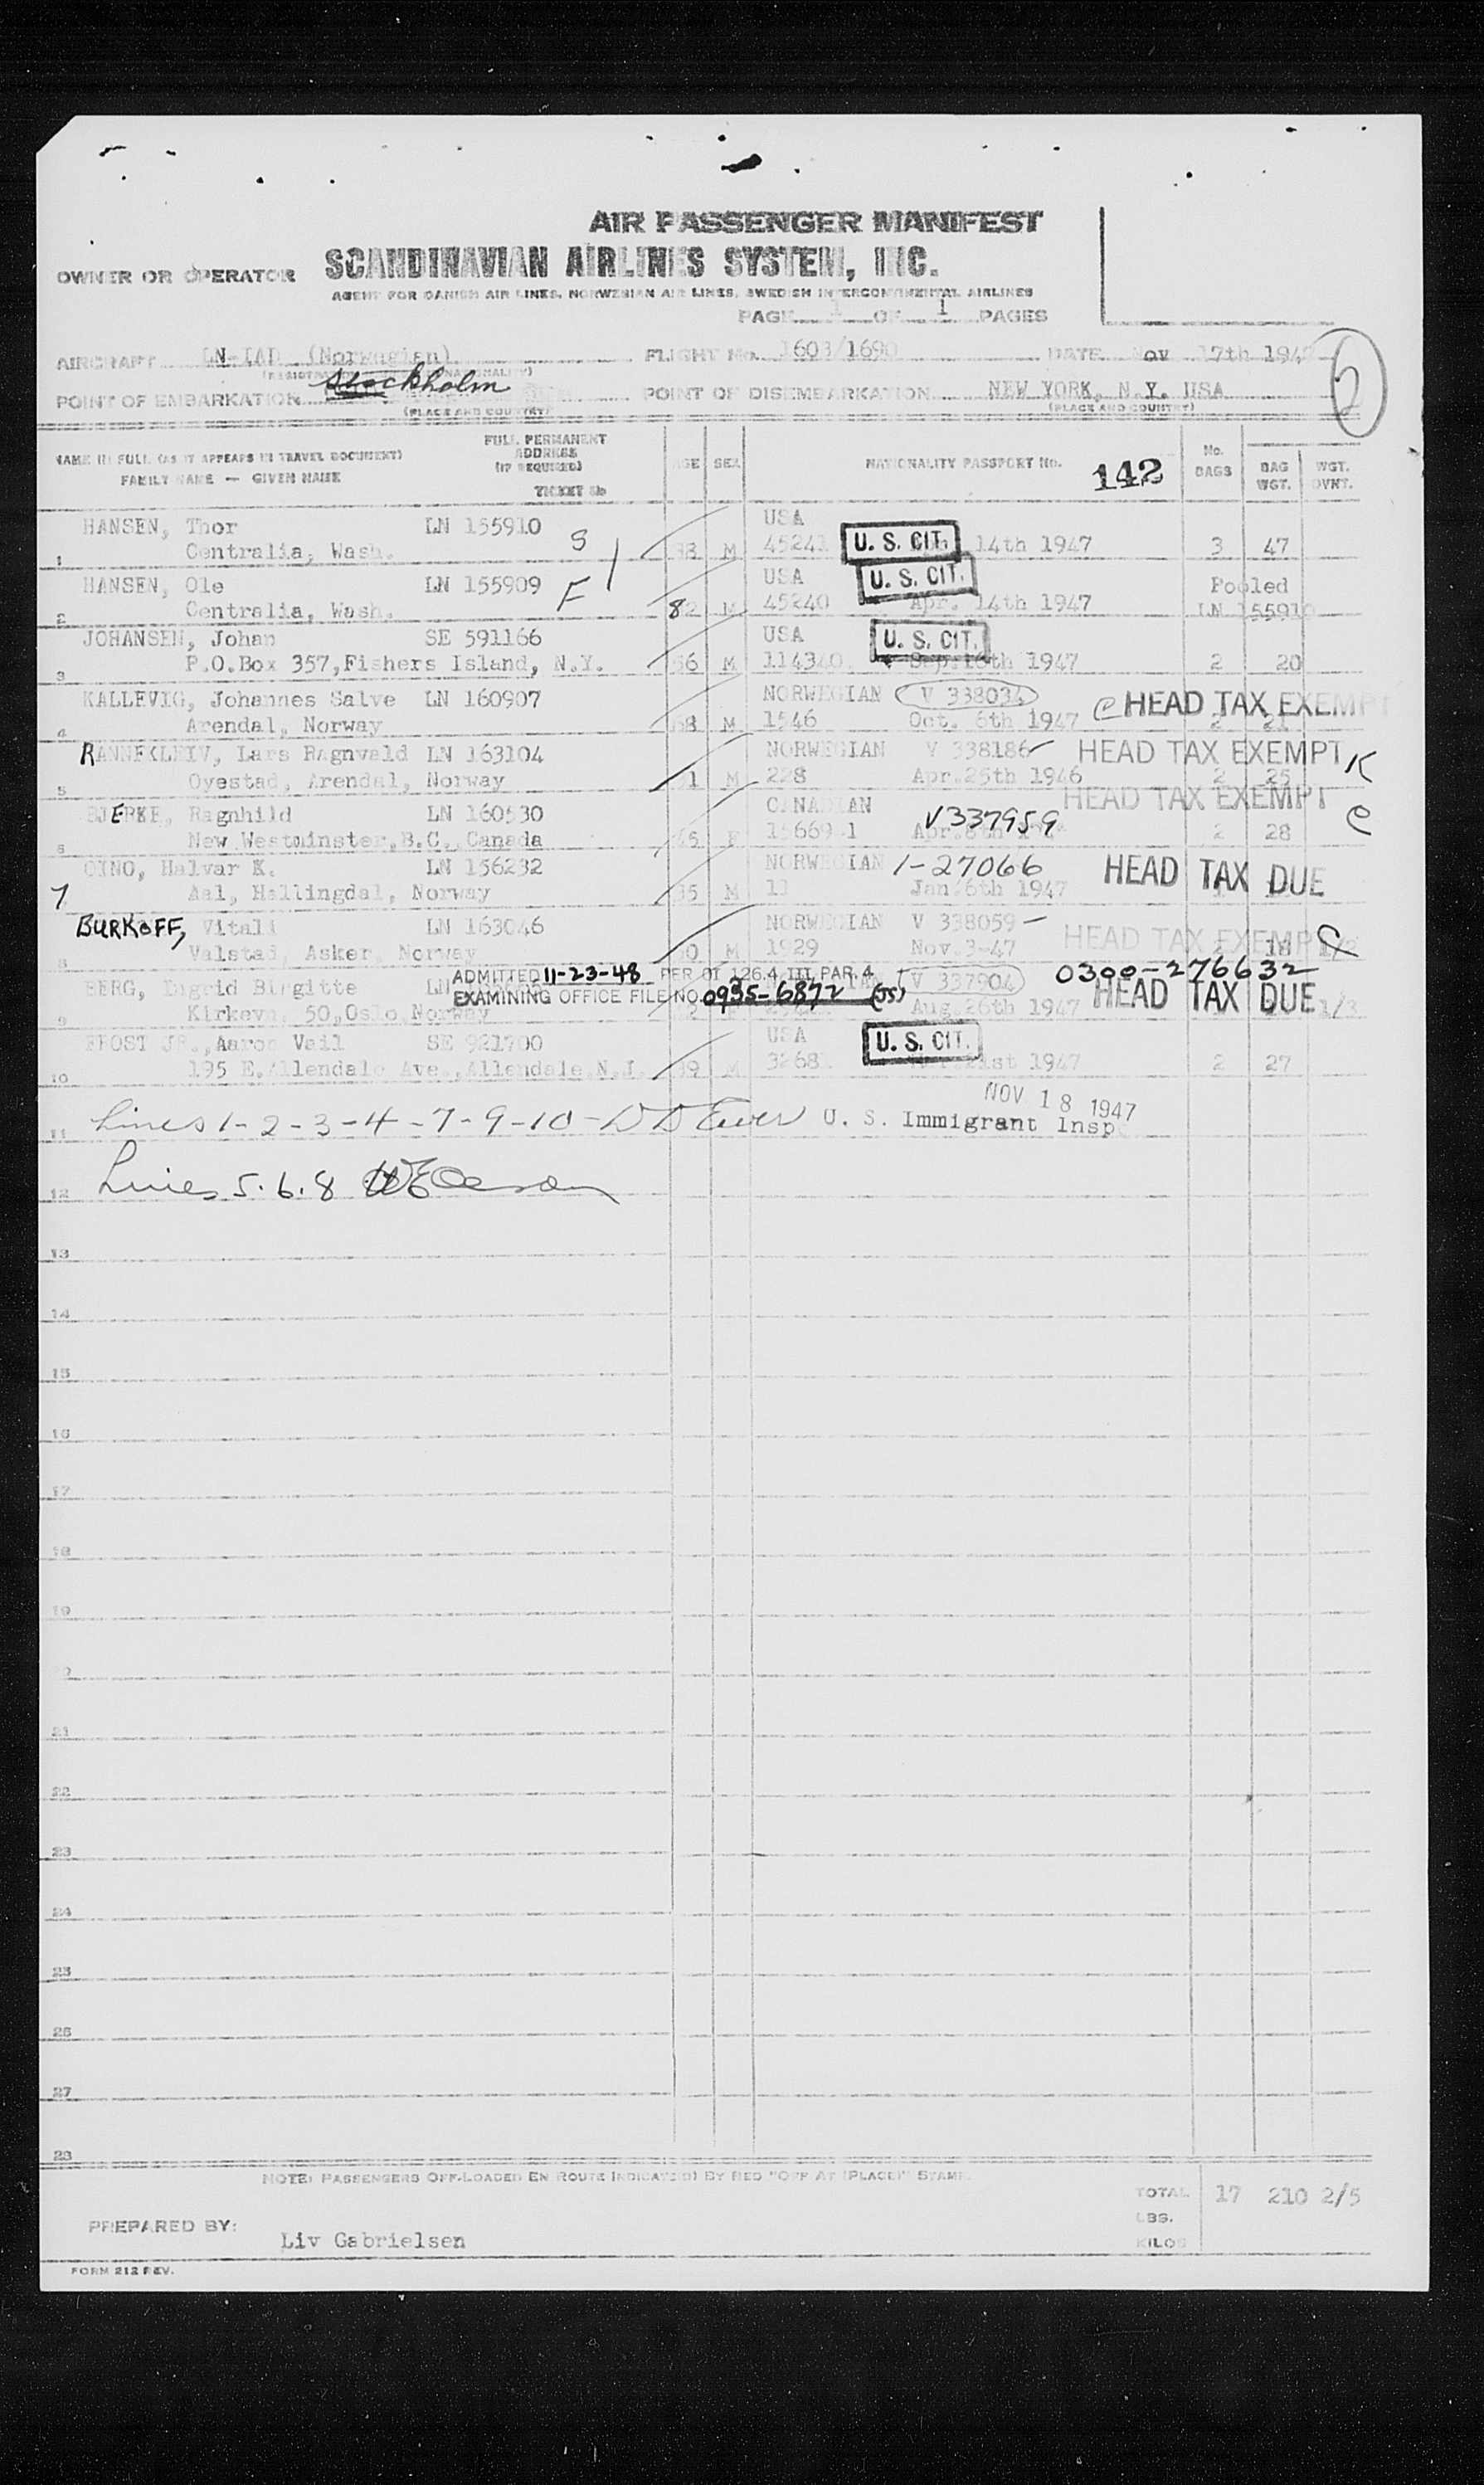 AIR PASSENGER MANIFEST
OWNER OR OPERATOR SCANDINAVIAN AIRLINES SYSTEM, INC.
AGENT FOR DANISH AIR LINES, NORWEGIAN AIR LINES, SWEDISH INTERCONTINENTAL AIRLINES
PAGE 1 OF 1 PAGES
AIRCRAFT (Norwegian) FLIGHT No. 1603/1690 DATE Nov 17th 194
POINT OF EMBARKATION Stockholm POINT OF DISEMBARKATION NEW YORK, N.Y. USA
(PLACE AND COUNTRY) (PLACE AND COUNTRY)
NAME IN FULL (AS IT APPEARS IN TRAVEL DOCUMENT) FULL PERMANENT ADDRESS (IF REQUIRED) AGE SEX NATIONALITY PASSPORT No. 142 No. BAGS BAG WGT. WGT. OVNT.
FAMILY NAME — GIVEN NAME TICKET No
HANSEN, Thor LN 155910 S USA
1 Centralia, Wash. M U. S. CIT. 14th 1947 3 47
HANSEN, Ole LN 155909 F USA U. S. CIT. Pooled
2 Centralia, Wash. 82 M 45240 Apr. 14th 1947 LN 155910
JOHANSEN, Johan SE 591166 USA U. S. CIT.
3 P.O.Box 357,Fishers Island, N.Y. 56 M 114340 1947 2 20
KALLEVIG, Johannes Salve LN 160907 NORWEGIAN V 338034 C HEAD TAX EXEMPT
4 Arendal, Norway M 1546 Oct. 6th 1947 2
RANNEKLEIV, Lars Ragnvald LN 163104 NORWEGIAN V 338186 HEAD TAX EXEMPT K
5 Oyestad, Arendal, Norway M 228 Apr.25th 1946 2 25
BJERKE, Ragnhild LN 160530 CANADIAN V337959 HEAD TAX EXEMPT C
6 New Westminster,B.C. Canada F 2 28
Halvar K. LN 156232 NORWEGIAN 1-27066 HEAD TAX DUE
7 Aal, Hallingdal, Norway M 11 Jan 6th 1947
BURKOFF, Vitali LN 163046 NORWEGIAN V 338059 HEAD TAX EXEMPT C
8 Valstad, Asker, Norway M 1929 Nov.3-47 18
ADMITTED 11-23-48 PER OI 126.4 III, PAR. 4 0300-276632
BERG, Ingrid Birgitte V 337904
EXAMINING OFFICE FILE NO. 0935-6872 HEAD TAX DUE
9 50,Oslo Norway Aug 26th 1947 1/3
FROST JR.,Aaron Vail SE 921700 USA U. S. CIT.
10 195 E.Allendale Ave.,Allendale N.J. M 1947 2 27
NOV 18 1947
11 Lines 1-2-3-4-7-9-10- U. S. Immigrant Insp
12 Lines 5.6.8
13
14
15
16
17
18
19
21
22
23
24
25
26
27
28
NOTE: PASSENGERS OFF-LOADED EN ROUTE INDICATED BY RED "OFF AT (PLACE)" STAMP.
TOTAL 17 210 2/5
LBS.
PREPARED BY: Liv Gabrielsen
KILOS
FORM 212 REV.